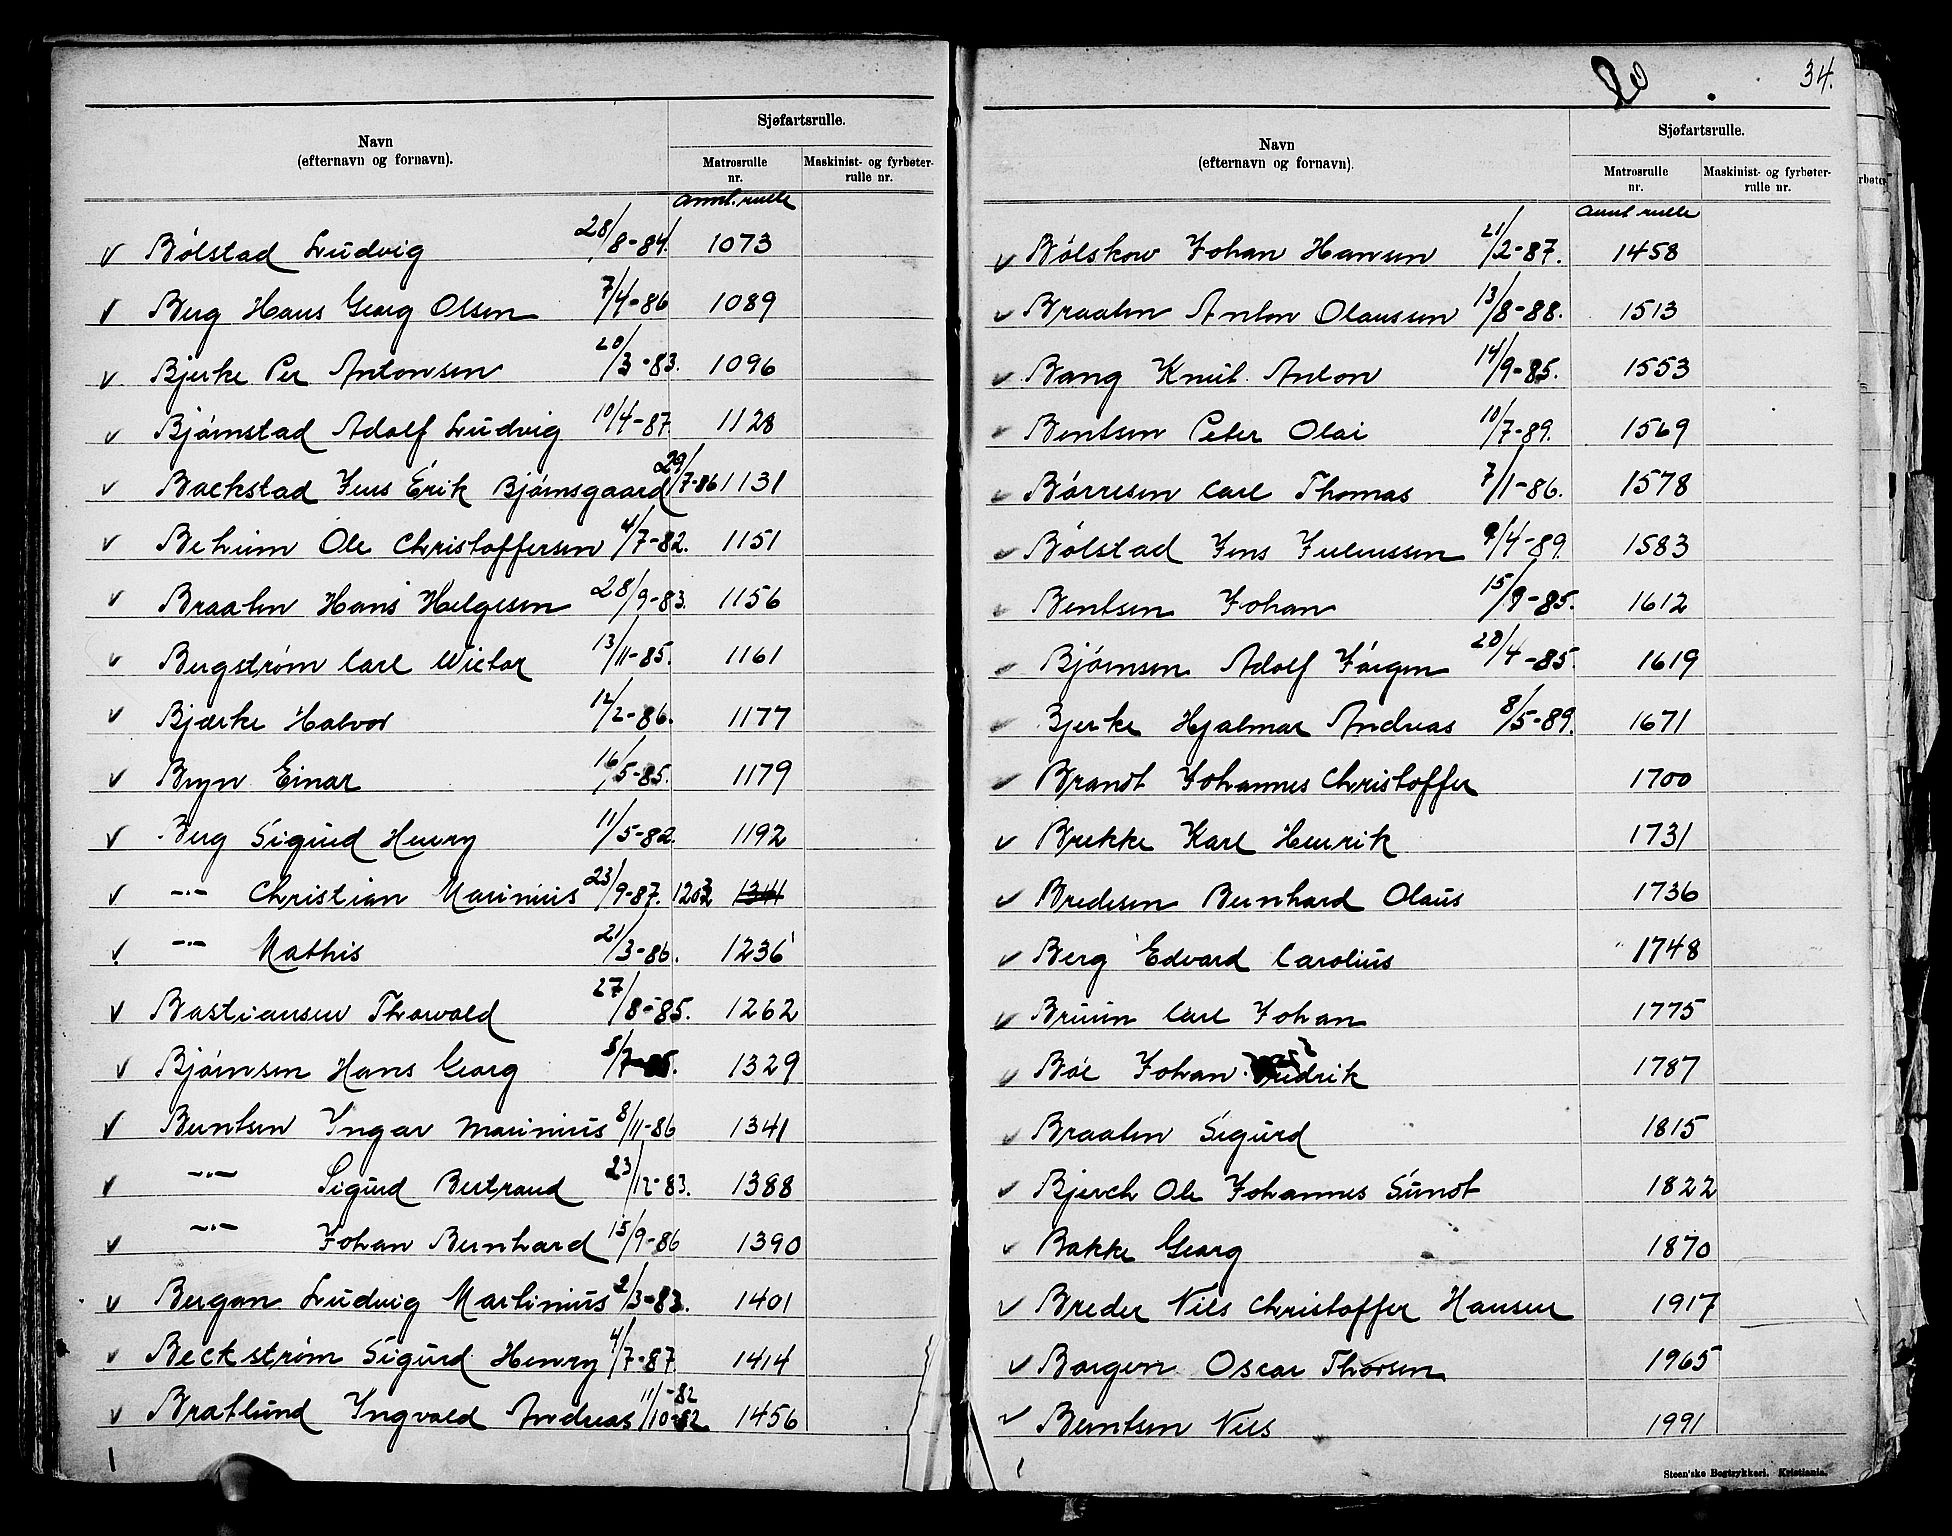 Navn
(efternavn og fornavn).
Sjøfartsrulle.
Matrosrulle nr.
Maskinist- og fyrbøter-rulle nr.
Annt. rulle
v Bølstad Ludvig 28/8-84. 1073
v Berg Hans Georg Olsen 7/4-86 1089
v Bjerke Per Antonsen 20/3-83. 1096
v Bjørnstad Adolf Ludvig 10/4-87. 1128
v Backstad Jens Erik Bjørnsgaard 29/7-86 1131
v Beheim Ole Christoffersen 4/7-82. 1151
v Braaten Hans Helgesen 28/9-83. 1156
v Bergstrøm Carl Wictor 13/11-85. 1161
v Bjærke Halvor 12/2-86. 1177
v Bryn Einar 16/5-85. 1179
v Berg Sigurd Henry 11/5-82. 1192
v -"- Christian Marinius 23/9-87. 1203 1341
v -"- Mathis 21/3-86. 1236
v Bastiansen Thorvald 27/8-85. 1262
v Bjørnsen Hans Georg 5/7-85. 1329
v Berntsen Yngar Marinius 8/11-86 1341
v -"- Sigurd Bertrand 23/12-83. 1388
v -"- Johan Bernhard 15/9-86 1390
v Bergan Ludvig Martinius 2/3-83. 1401
v Beckstrøm Sigurd Henry 4/7-87 1414
11/-82
v Bratlund Yngvald Andreas 11/10-82 1456
34.
Navn
(efternavn og fornavn).
Sjøfartsrulle.
Matrosrulle nr.
Maskinist- og fyrbøter-rulle nr.
Annt rulle
v Bølskow Johan Hansen 21/2-87. 1458
v Braaten Anton Olaussen 13/8-88. 1513
v Bang Knut Anton 14/9-85. 1553
v Bentsen Peter Olai 10/7-89. 1569
v Børresen Carl Thomas 7/1-86. 1578
v Bølstad Jens Juliussen 9/4-89. 1583
v Bentsen Johan 15/9-85. 1612
v Bjørnsen Adolf Jørgen 20/4-85. 1619
v Bjerke Hjalmar Andreas 8/5-89. 1671
v Brandt Johannes Christoffer 1700
v Brekke Karl Henrik 1731
v Bredesen Bernhard Olaus 1736
v Berg Edvard Carolius 1748
v Bruun Carl Johan 1775
v Bøe Johan Fredrik 1787
v Braaten Sigurd 1815
v Bjerch Ole Johannes Sundt 1822
v Bakke Georg 1870
v Breder Niels Christoffer Hansen 1917
v Borgen Oscar Thorsen 1965
v Berntsen Nils 1991
Steen'ske Bogtrykkeri. Kristiania.